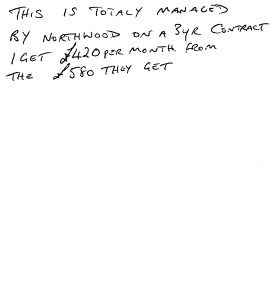 THIS IS TOTALY MANAGED
BY NORTHWOOD ON A 3YR CONTRACT
I GET £420 PER MONTH FROM
THE £580 THEY GET